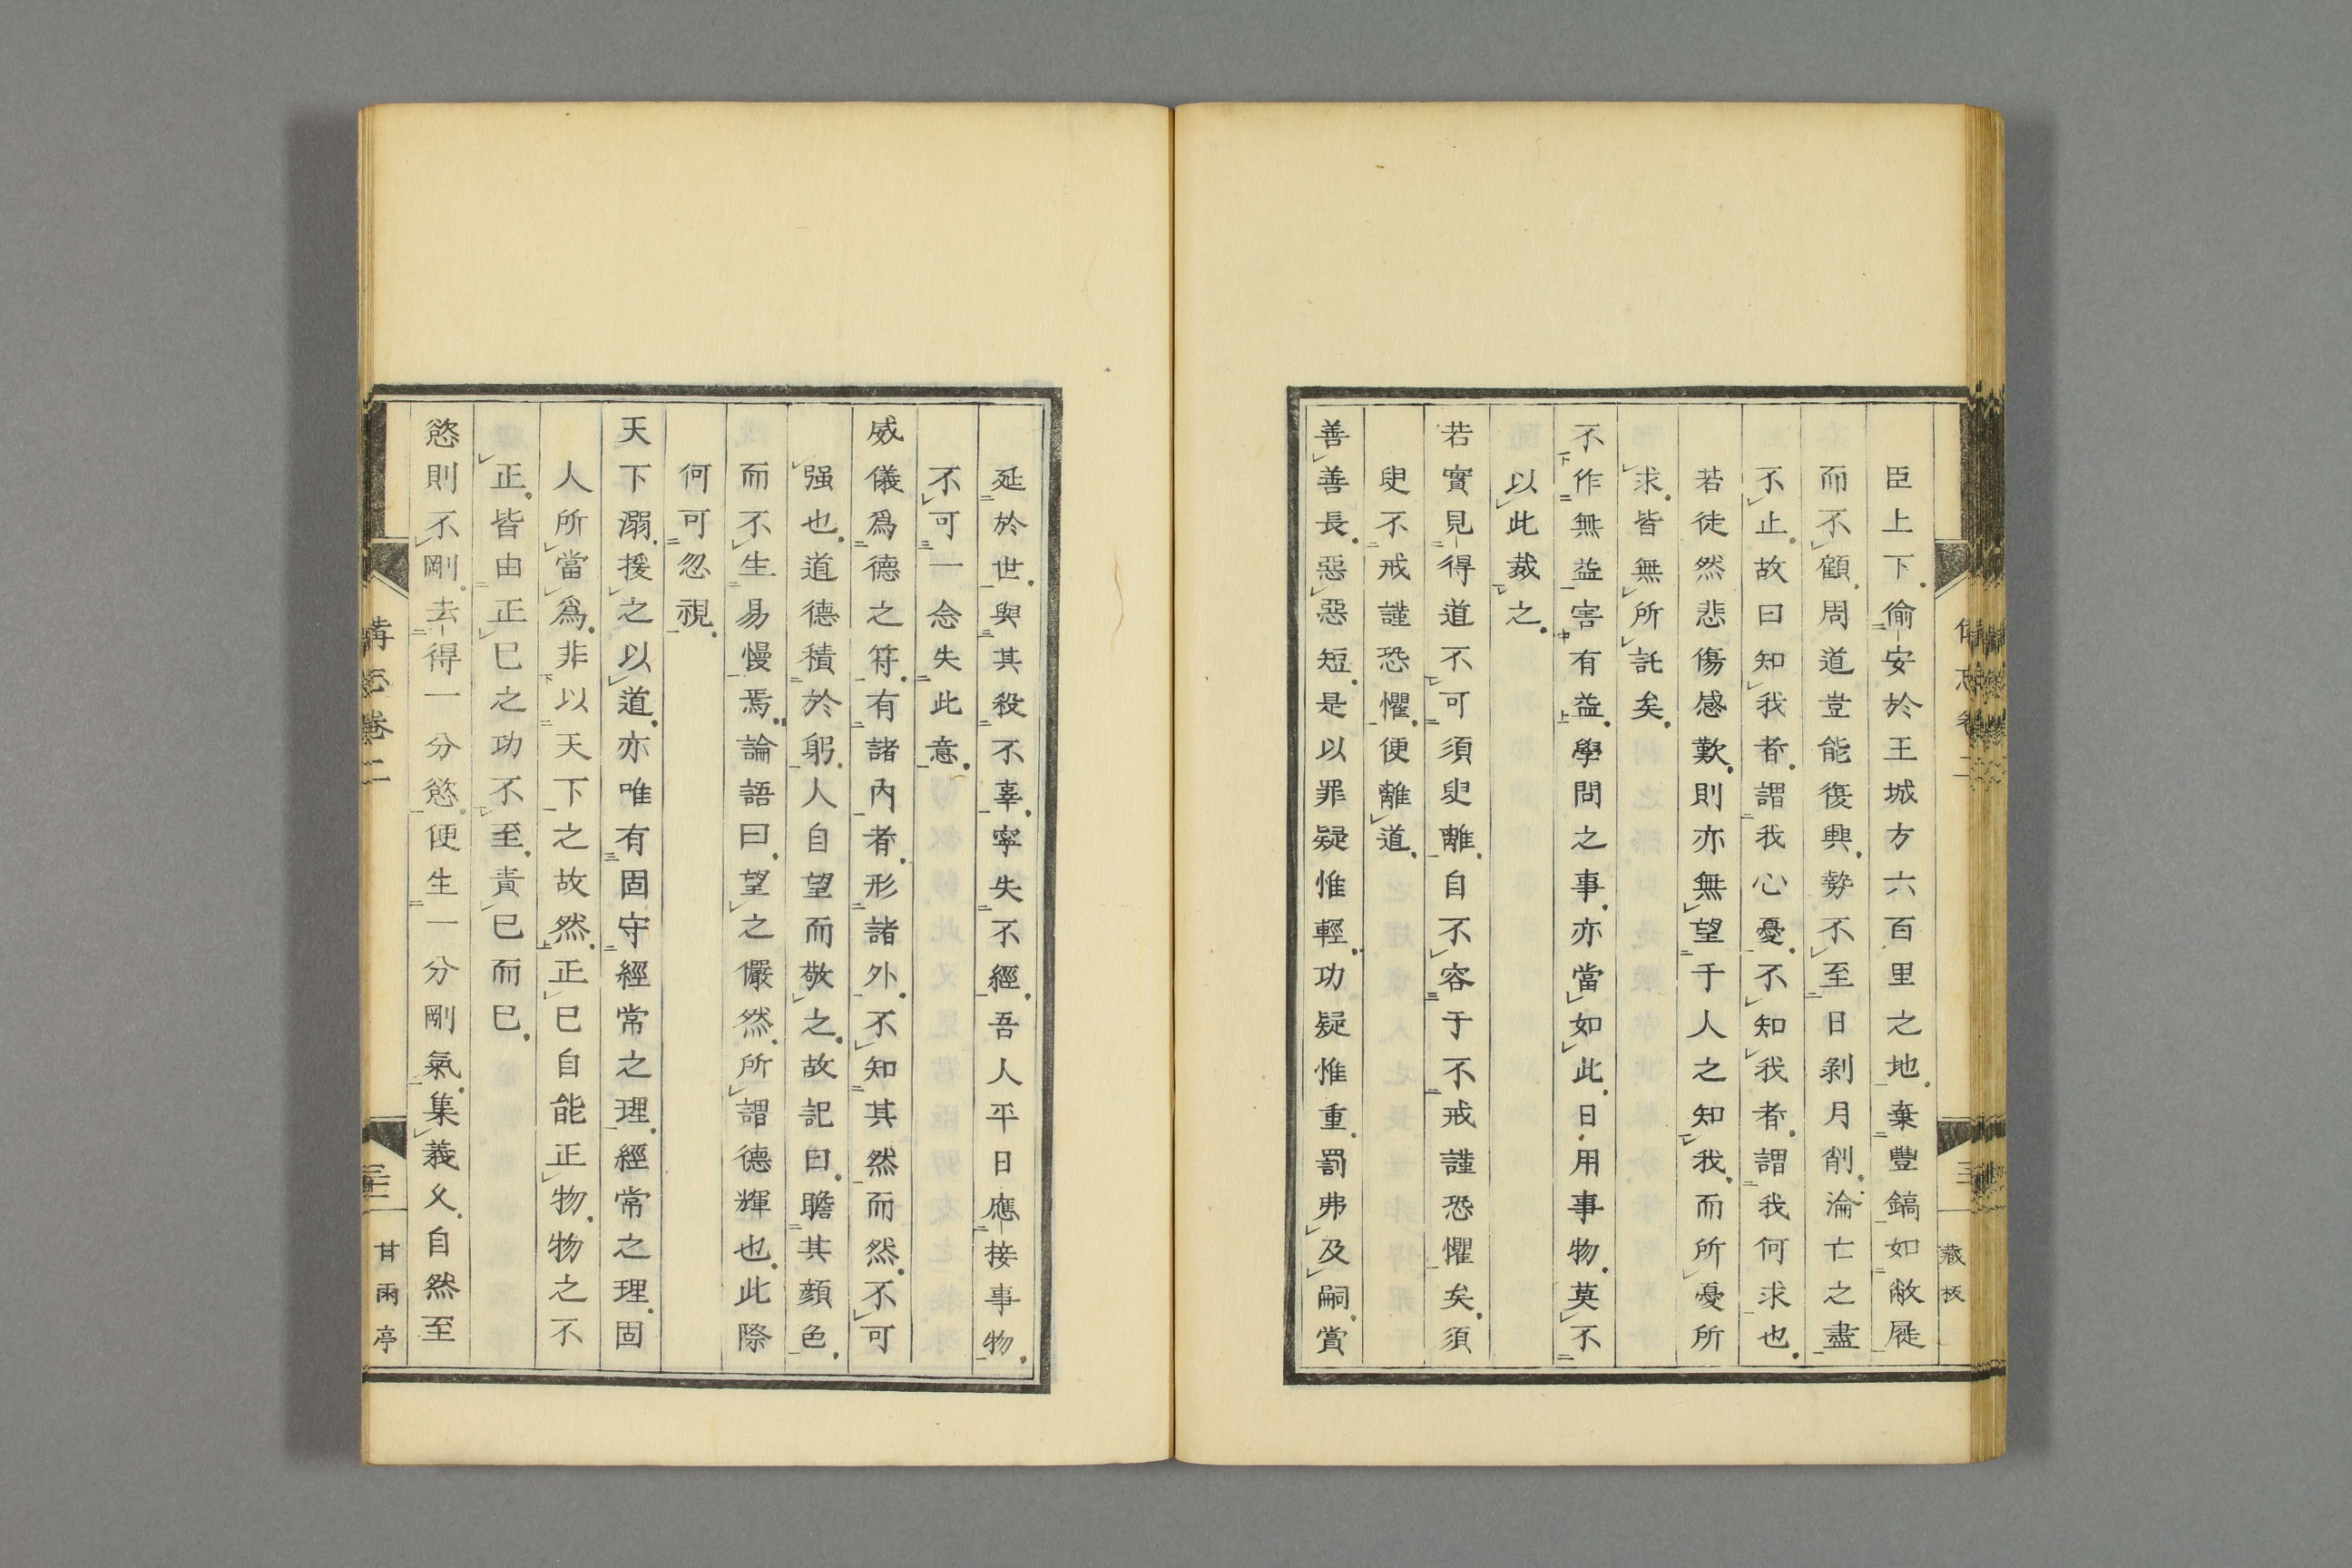 臣上下偷安於王城方六百里之地棄豐鎬如敝屣
而不顧周道豈能復興勢不至日剥月削淪亡之盡
不止故曰知我者謂我心憂不知我者謂我何求也
若徒然悲傷感歎則亦無望于人之知我而所憂所
求皆無所託矣
不作無益害有益學問之事亦當如此日用事物莫不
以此裁之
若實見得道不可須臾離自不容于不戒謹恐懼矣須
臾不戒謹恐懼便離道
善善長惡惡短是以罪疑惟輕功疑惟重罰弗及嗣賞
延於世與其殺不辜寧失不經吾人平日應接事物
不可一念失此意
威儀爲德之符有諸內者形諸外不知其然而然不可
强也道德積於躬人自望而敬之故記曰瞻其顔色
而不生易慢焉論語曰望之儼然所謂德輝也此際
何可忽視
天下溺援之以道亦唯有固守經常之理經常之理固
人所當爲非以天下之故然正已自能正物物之不
正皆由正已之功不至責已而已
慾則不剛去得一分慾便生一分剛氣集義久自然至
藏板
卷二
甘雨亭